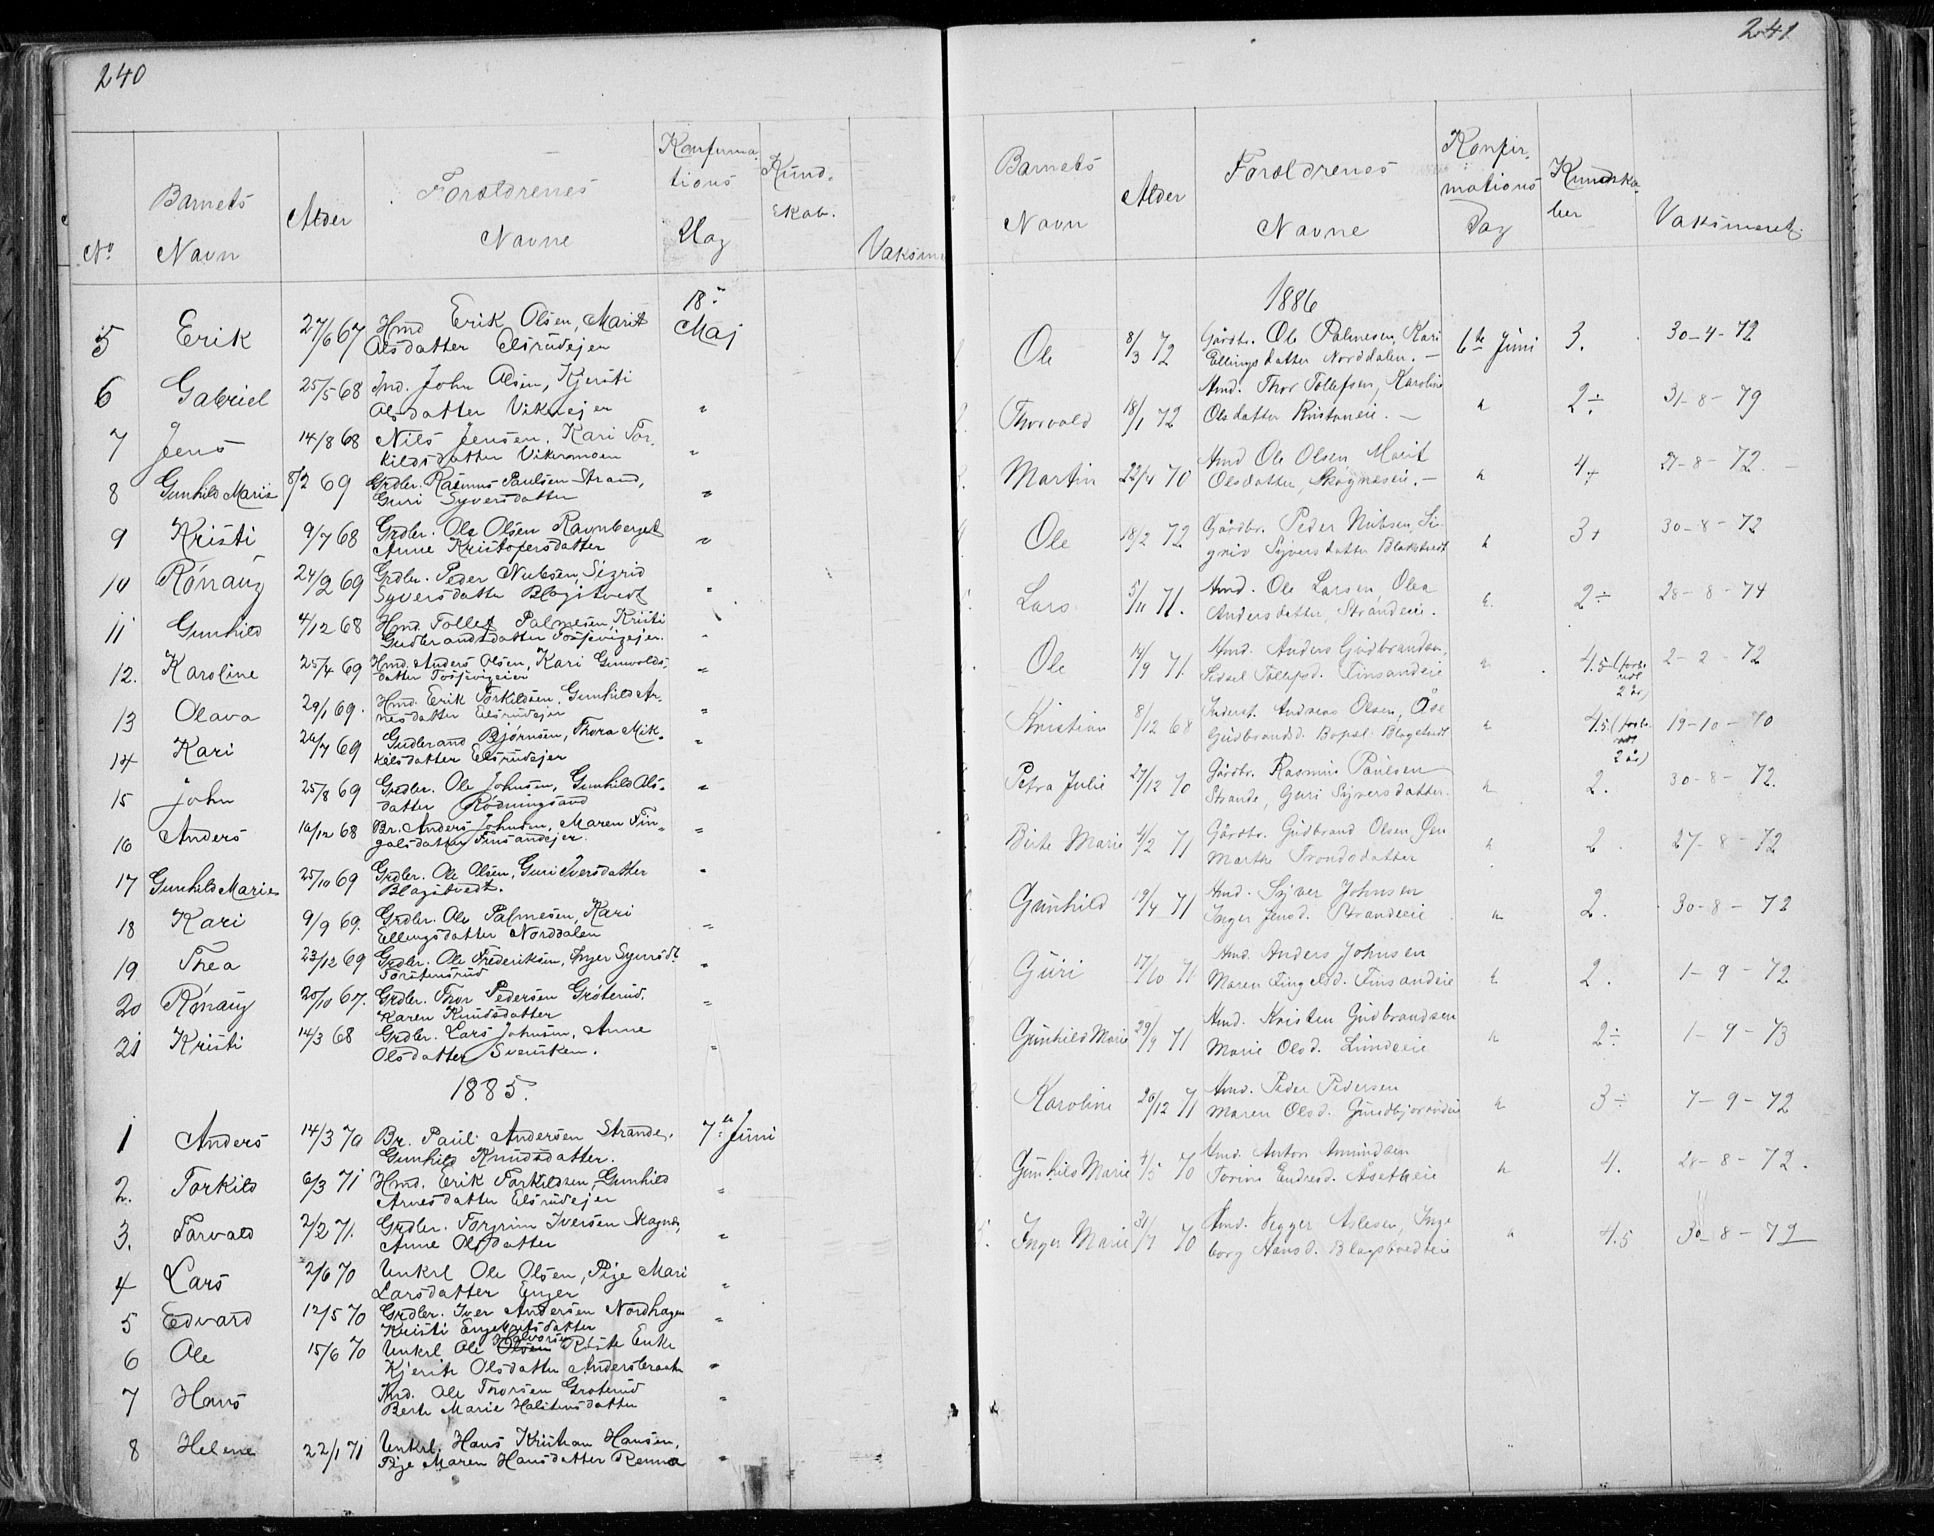 240
No
Barnets
Navn
Alder
Forældrenes
Navne
Konfirma
tions
Dag
Kund-
skab.
Vaksin
18de
5 Erik 27/6 67 Hmd Erik Olsen, Marit Maj
Olsdatter Elsrudejer
6 Gabriel 25/5 68 Ind. John Olsen, Kjersti
Olsdatter Vikmejer "
7 Jens 14/8 68 Nils Jensen, Kari Tor-
kildsdatter Vikermoen "
8 Gunhild Marie 8/2 69 Grdbr. Rasmus Paulsen Strand,
Guri Syversdatter "
9 Kristi 9/7 68 Grdbr. Ole Olsen Ravnberget
Anne Kristofersdatter "
10 Rónaug 24/2 69 Grdbr. Peder Nubsen, Sigrid
Syversdatter Blagstvedt "
11 Gunhild 4/12 68 Hmd. Tollef Palmesen, Kristi
Gudbrandsdatter "
12. Karoline 25/4 69 Hmd. Anders Olsen, Kari Gunvolds-
datter "
13 Olava 29/1 69. Hmd. Erik Torkildsen, Gunhild Ar-
nesdatter Elsrudejer "
14 Kari 26/7 69 Gudbrand Bjørnsen, Thora Mik-
kelsdatter Elsrudejer "
15 John 25/8 69 Grdbr. Ole Johnsen, Gunhild Ols-
datter Rodningsand "
16 Anders 16/12 68 Br. Anders Johnsen, Maren Fin-
galsdatter Finsandejer. "
17 Gunhild Marie 25/10 69 Grdbr. Ole Olsen, Guri Iversdatter
Blagstvedt. "
18 Kari 9/9 69. Grdbr. Ole Palmesen, Kari
Ellingsdatter Norddalen "
19 Thea 23/12 69 Grdbr. Ole Frederiksen, Inger Syversdt.
Torstensrud "
20 Rónaug 20/10 67. Grdbr. Thor Pedersen Grøterud.
Karen Knudsdatter "
21 Kristi 14/3 68 Grdbr. Lars Johnsen, Anne
Olsdatter Svensken. "
1885.
1 Anders 14/3 70 Br. Paul Andersen Strande, 7de Juni
Gunhild Knudsdatter.
2. Torkild 6/3 71 Hmd. Erik Torkildsen, Gunhild
Arnesdatter Elsrudejer "
3. Torvald 2/2 71. Grdbr. Torgrim Iversen Skagnes,
Anne Olsdatter "
4 Lars 2/6 70 Unkrl Ole Olsen, Pige Mari
Larsdatter Enger "
5 Edvard 12/5 70 Grdbr. Iver Andersen Nordhagen
Kristi Engebretsdatter "
Halvorsen
6 Ole 15/6 70 Unkrl Ole Olsen Røste Enke
Kjersti Olsdatter Andersbraate "
7 Hans Hmd. Ole Thorsen Groterud
Berte Marie Halstensdatter "
8 Helene 22/1 71 Unkrl. Hans Kristian Hansen,
Pige Maren Hansdatter Renna "
241
Barnets
Navn
Alder
Forældrenes
Navne
Konfir-
mations
Dag
Kundska
ber
Vaksineret.
1886
Ole 8/3 72 Gårdbr. Ole Palmesen, Kari 6te Juni 3. 30-4-72
Ellingsdatter Norddalen. -
Thorvald 18/1 72 Hmd. Thor Tollefsen, Karoline " 2÷ 31-8-79
Olsdatter -
Martin 22/4 70 Hmd Ole Olsen Marit " 4+ 27-8-72.
Olsdatter, Skagneseie. -
Ole 18/2 72 Gårdbr. Peder Nubsen, Si- " 3+ 30-8-72
grid Syversdatter Blakstvedt
Lars 5/11 71. Hmd. Ole Larsen, Olea " 2÷ 28-8-74
Andersdatter, Strandeie.
Ole 14/9 71. Hmd. Anders Gudbrandsen, " 4.5 (forbe 2-2-72
Sidsel Tollefsd. Finsandeie
2 år)
Kristian 8/12 68 Inderst. Andreas Olsen, Åse " 4.5 (forbe 19-10-70
Gudbrandsd. Bopsl. Blagstvedt
2 år)
Petra Julie 27/12 70 Gårdbr. Rasmus Paulsen " 2. 30-8-72.
Strande, Guri Syversdatter.
Birte Marie 4/2 71 Gårdbr. Gudbrand Olsen Øen " 2 27-8-72
Marthe Trondsdatter
Gunhild 19/4 71 Hmd. Syver Johnsen " 2. 30-8-72
Inger Jensd. Strandeie
Guri 17/10 71 Hmd. Anders Johnsen " 2. 1-9-72
Maren Fingalsd. Finsandeie
Gunhild Marie 29/9 71 Hmd. Kristen Gudbrandsen " 2÷ 1-9-73
Marie Olsd. Lundeeie
Karoline 26/12 71 Hmd. Peder Pedersen " 3÷ 7-9-72
Maren Olsd.
Gunhild Marie 4/5 70 Hmd. Anton Amundsen " 4. 28-8-72.
Torine Endresd. Åsetheie
Inger Marie 31/7 70 Hmd. Vegger Aslesen, Inge " 4.5 30-8-72
borg Hansd. Blagstvedteie